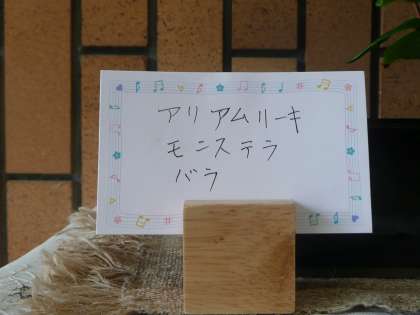 アリアムリーキ
モンステラ
バラ